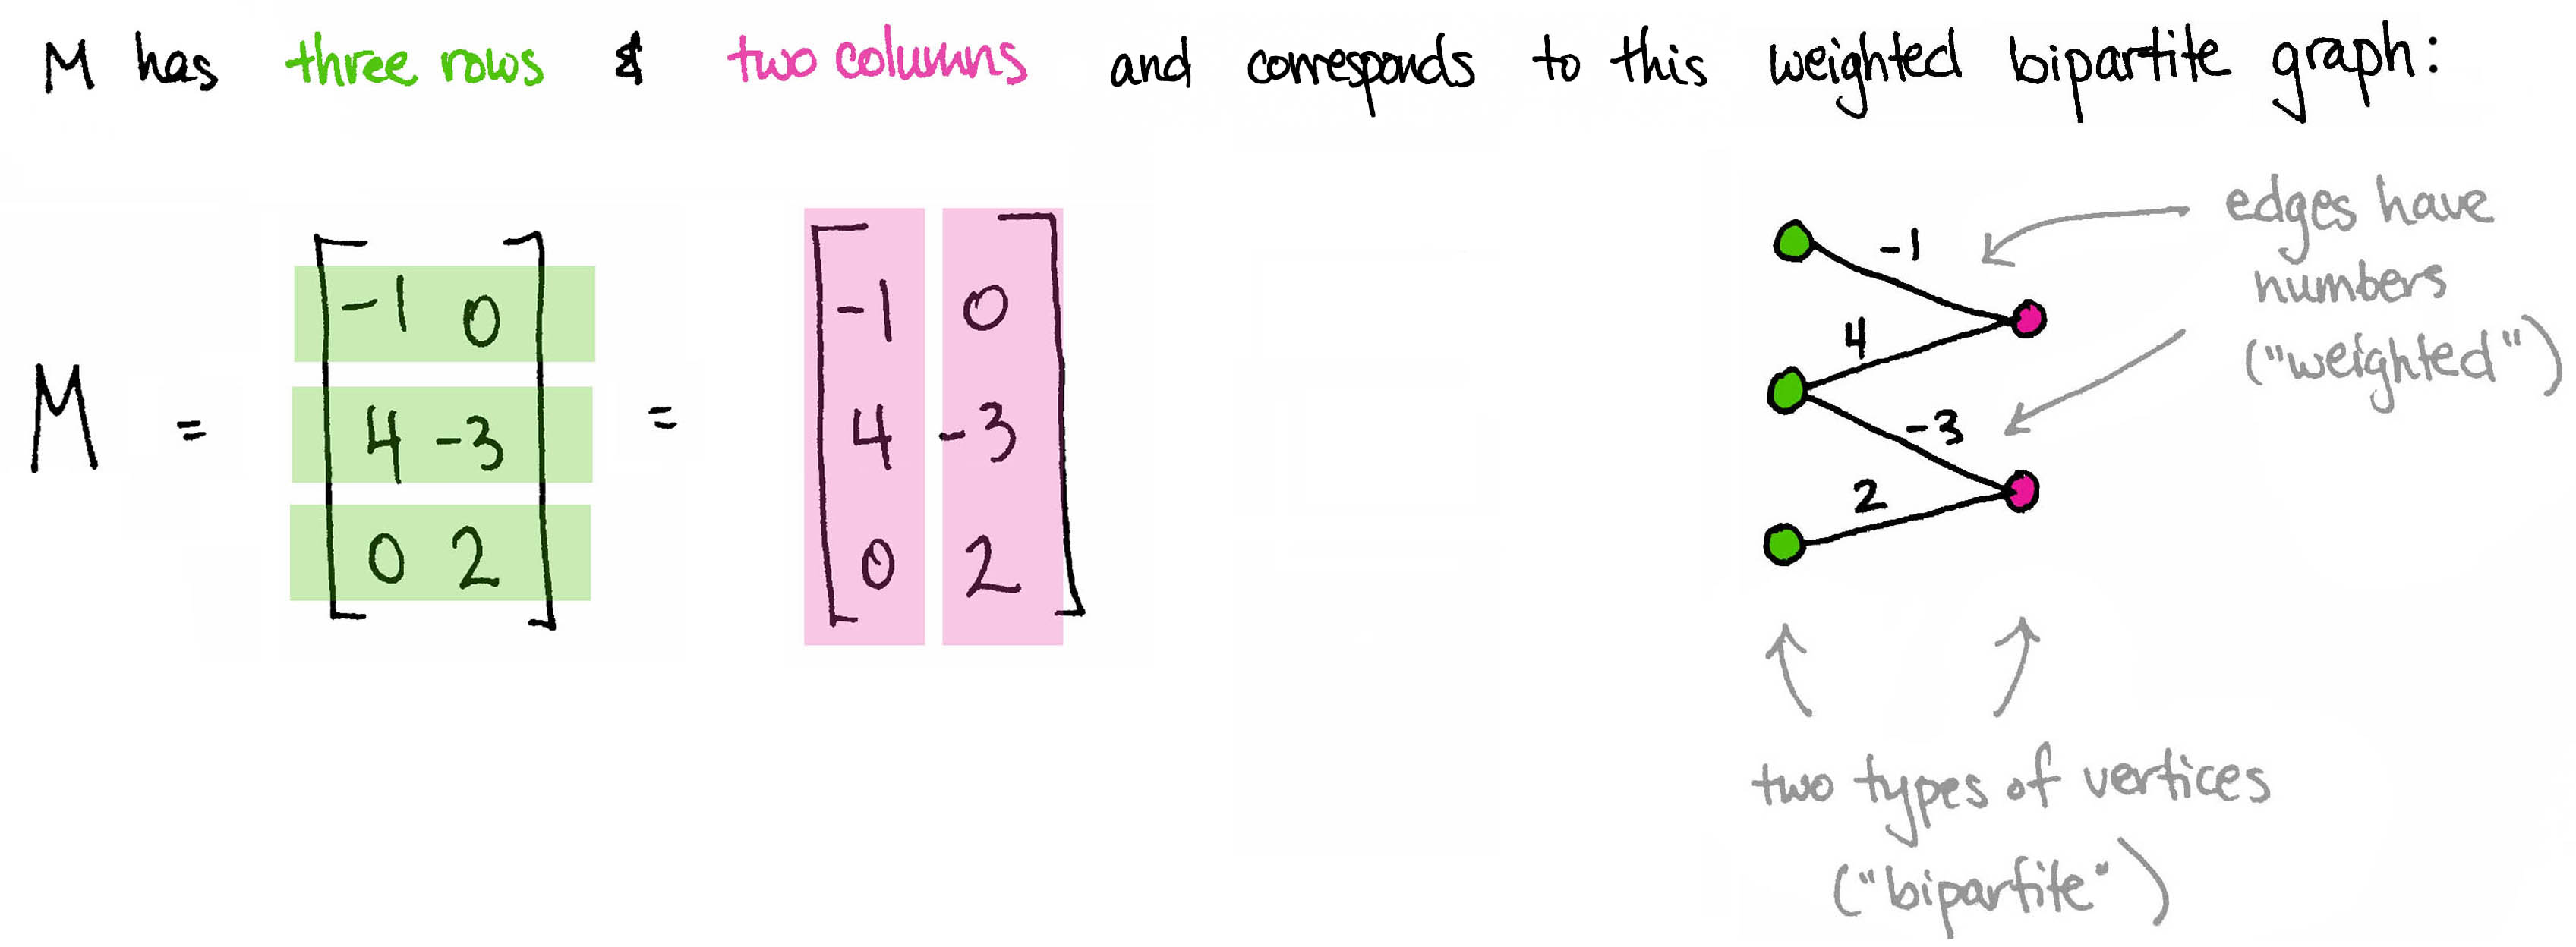 M has three rows & two columns and corresponds to this weighted bipartite graph:
M = [ -1 0 ] = [ -1 0 ]
4 -3
4 -3
0 2
0 2
-1
4
-3
2
edges have
numbers
("weighted")
two types of vertices
("bipartite")